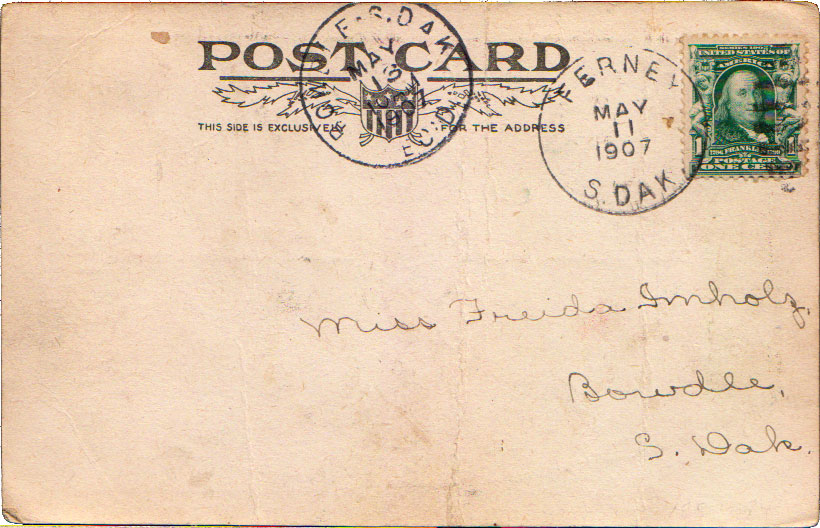 POST CARD
THIS SIDE IS EXCLUSIVELY FOR THE ADDRESS
BOWDLE S. DAK.
MAY
1907
REC'D.
FERNEY
MAY
11
1907
S. DAK.
SERIES 1902
UNITED STATES OF
AMERICA
FRANKLIN
POSTAGE
ONE CENT
Miss Freida Imholz,
Bowdle,
S. Dak.